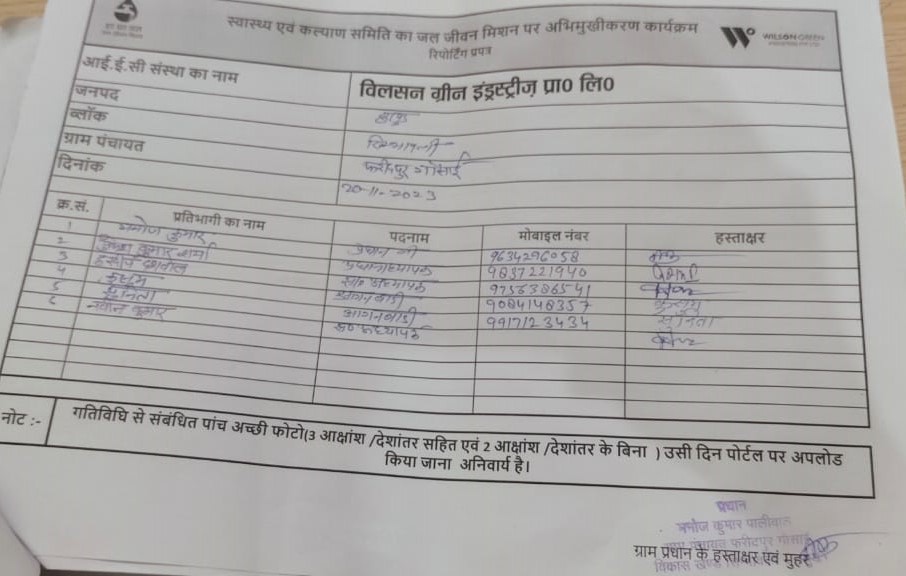 हर घर जल
जल जीवन मिशन
स्वास्थ्य एवं कल्याण समिति का जल जीवन मिशन पर अभिमुखीकरण कार्यक्रम
रिपोर्टिंग प्रपत्र
WILSON GREEN
आई.ई.सी संस्था का नाम विलसन ग्रीन इंड्रस्ट्रीज़ प्रा0 लि0
जनपद हापुड़
ब्लॉक
ग्राम पंचायत फरीदपुर गोसाई
दिनांक 20-11-2023
क्र.सं. प्रतिभागी का नाम पदनाम मोबाइल नंबर हस्ताक्षर
1 मनोज कुमार प्रधान जी 9634296058
2 कुमार शर्मा प्रधानाध्यापक 9837221940
3 सहा० अध्यापक 9756386541
4 कुसुम आंगनबाडी 9084148357 कुसुम
5 सुनिता आगनबाडी 9917123434 सुनिता
6 कुमार स० अध्यापक
नोट :- गतिविधि से संबंधित पांच अच्छी फोटो(3 आक्षांश /देशांतर सहित एवं 2 आक्षांश /देशांतर के बिना ) उसी दिन पोर्टल पर अपलोड
किया जाना अनिवार्य है।
प्रधान
मनोज कुमार पालीवाल
ग्राम पंचायत फरीदपुर गोसाई
विकास खण्ड
ग्राम प्रधान के हस्ताक्षर एवं मुहर